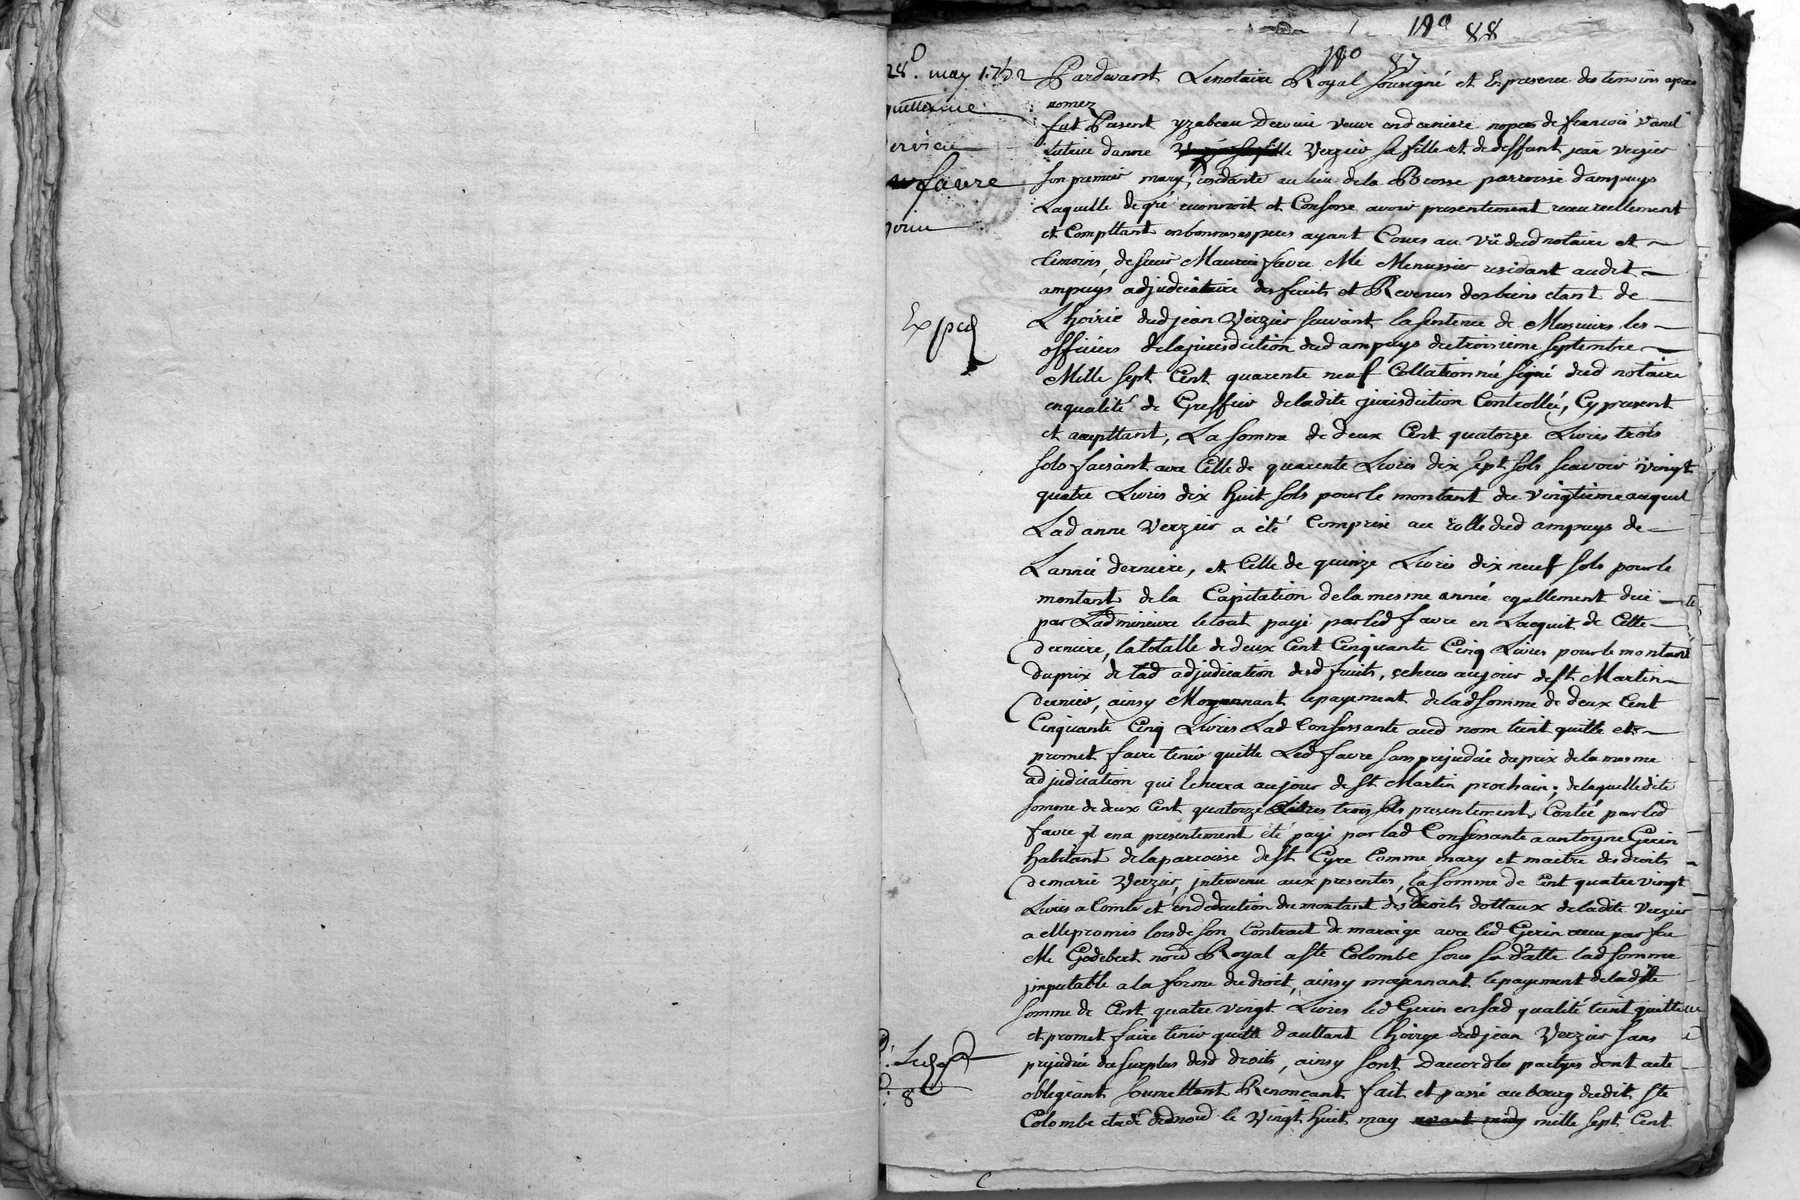 190 88
190 87
28 may 1752
quittance
Pardevant Lenotaire Royal sousigné et En presence des temoins apres
nomez
fut Present yzabeau veuve en derniere nopces de francois
tutrice danne Verzier sa fille et de deffunt jean Verzier
favre
son premier mary, residante au lieu de la Brosse parroisse dampuys
Laquelle de gré reconnoit et Confesse avoir presentement receu reellement
et Compttant en bonnes especes ayant Cours au vû dud notaire et
temoins, de sieur Maurice favre Me Menussier residant audit
ampuys adjudicataire des fruits et Revenus des biens etant de
Lhoirie dud jean Verzier suivant la sentence de Messieurs les
Exped
officiers de la jurisdiction dud ampuys du troisieme septembre
Mille sept Cent quarente neuf Collationnée signé dud notaire
en qualité de Greffier de ladite jurisdiction Controllée, Cy present
et accepttant, La somme de deux Cent quatorze Livres trois
sols faisant avec Celle de quarente Livres dix sept sols scavoir vingt
quatre Livres dix huit sols pour le montant du vingtieme auquel
Lad anne Verzier a été Comprise au rolle dud ampuys de
Lannée derniere, et Celle de quinze Livres dix neuf sols pour le
montant de la Capitation de la mesme année egallement due
par Lad mineure le tout payé par led favre en Lacquit de Cette
derniere, la totalle de deux Cent Cinquante Cinq Livres pour le montant
du prix de lad adjudication desd fruits, echeus au jour de st Martin
dernier, ainsy Moyennant le payement de lad somme de deux Cent
Cinquante Cinq Livres Lad Confessante aud nom tient quitte et
promet faire tenir quitte Led favre sans prejudice du prix de la mesme
adjudication qui Echerra au jour de st Martin prochain; de laquelle dite
somme de deux Cent quatorze Livres trois sols presentement Contée par led
favre il en a presentement été payé par lad Confessante a antoyne Gerin
habitant de la parroisse de st Cyre Comme mary et maitre des droits
de marie Verzier, intervenu aux presentes, la somme de Cent quatre vingt
Livres a Comte et en deduction du montant des droits dottaux de ladite Verzier
a elle promis lors de son Contrait de mariage avec led Gerin receu par feu
Me Godebert nore Royal a ste Colombe sous sa datte lad somme
imputable a la forme du droit, ainsy moyennant le payement de ladite
somme de Cent quatre vingt Livres led Gerin en sad qualité tient quitte
et promet faire tenir quitte dauttant Lhoirye dud jean Verzier sans
prejudice du surplus desd droits, ainsy sont Daccord les partyes dont acte
obligeant soumettant Renonçant fait et passé au bourg dudit ste
8
Colombe le vingt huit may mille sept Cent